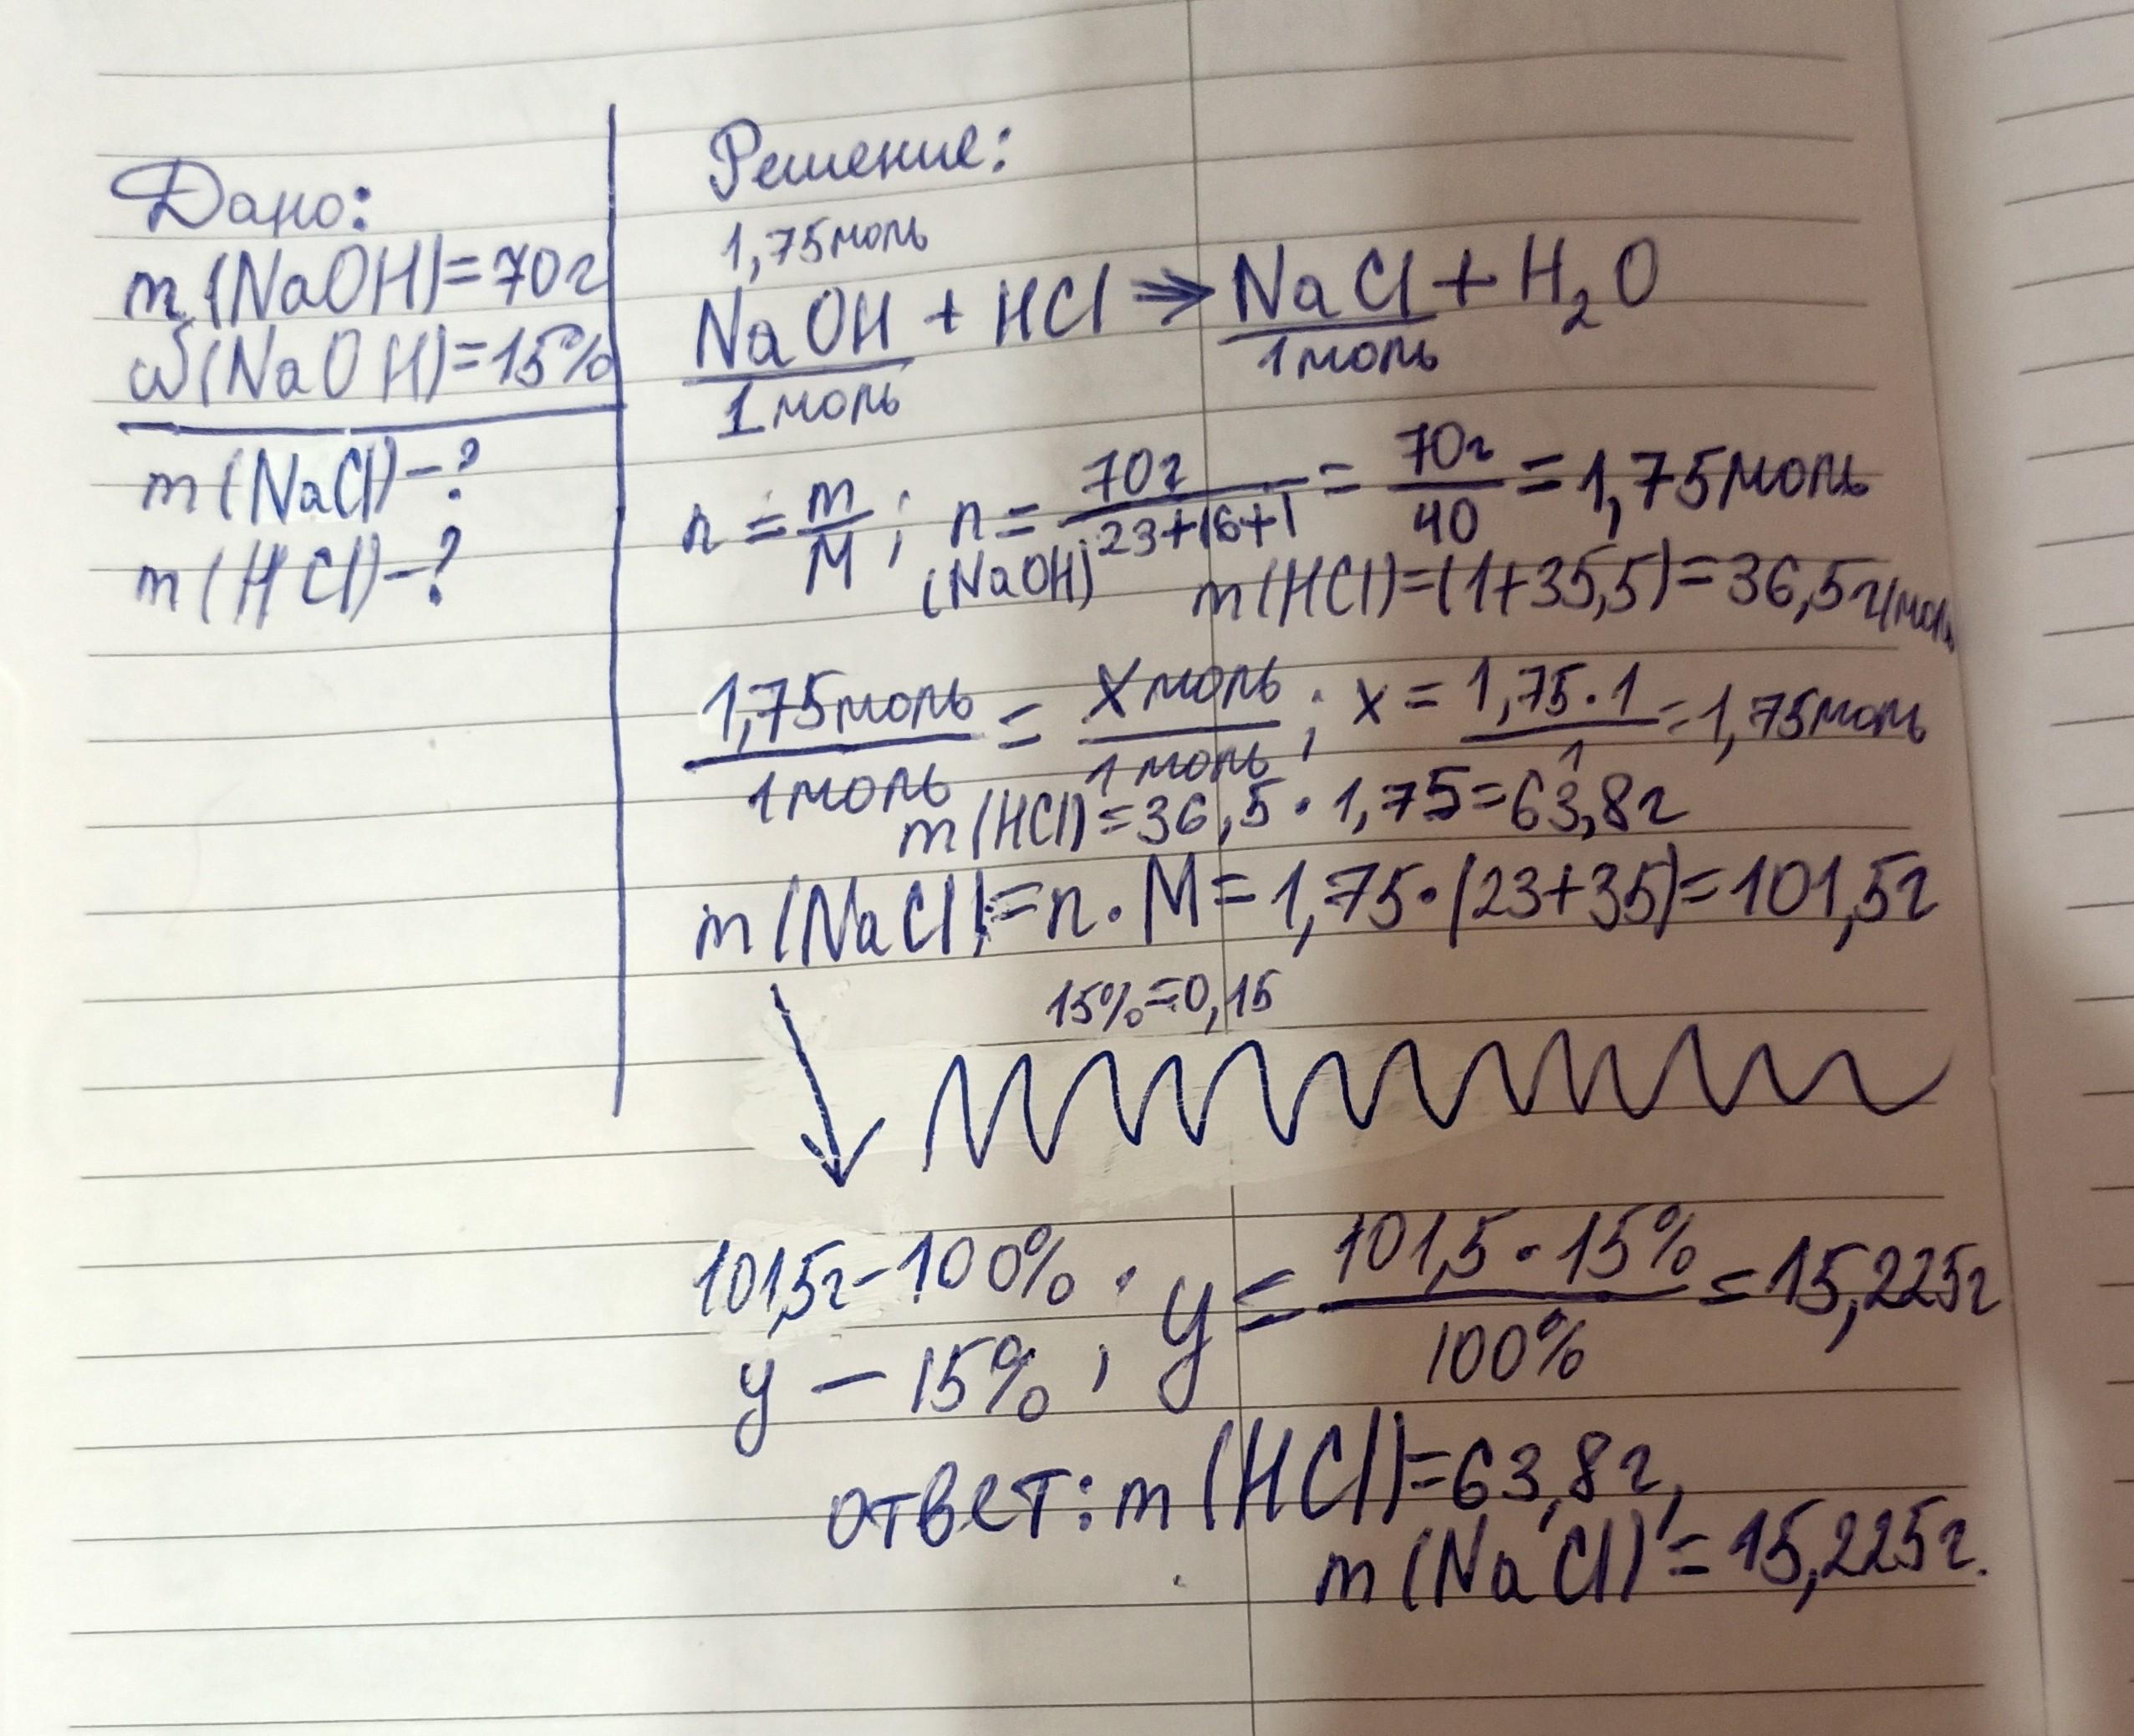 Дано:
m (NaOH)=70г
ω(NaOH)=15%
m(NaCl)-?
m(HCl)-?
Решение:
1,75моль
NaOH + HCl ⇒ NaCl + H₂O
1моль 1моль
n = m/M; n(NaOH) = 70г/23+16+1 = 70г/40 = 1,75моль
m(HCl)=(1+35,5)=36,5г/моль
1,75моль/1моль = xмоль/1моль; x = 1,75·1/1 = 1,75моль
m(HCl)=36,5·1,75=63,8г
m(NaCl)=n·M=1,75·(23+35)=101,5г
15%=0,15
101,5г-100%; y = 101,5·15%/100% = 15,225г
y - 15%
ответ: m(HCl)=63,8г,
m(NaCl)=15,225г.